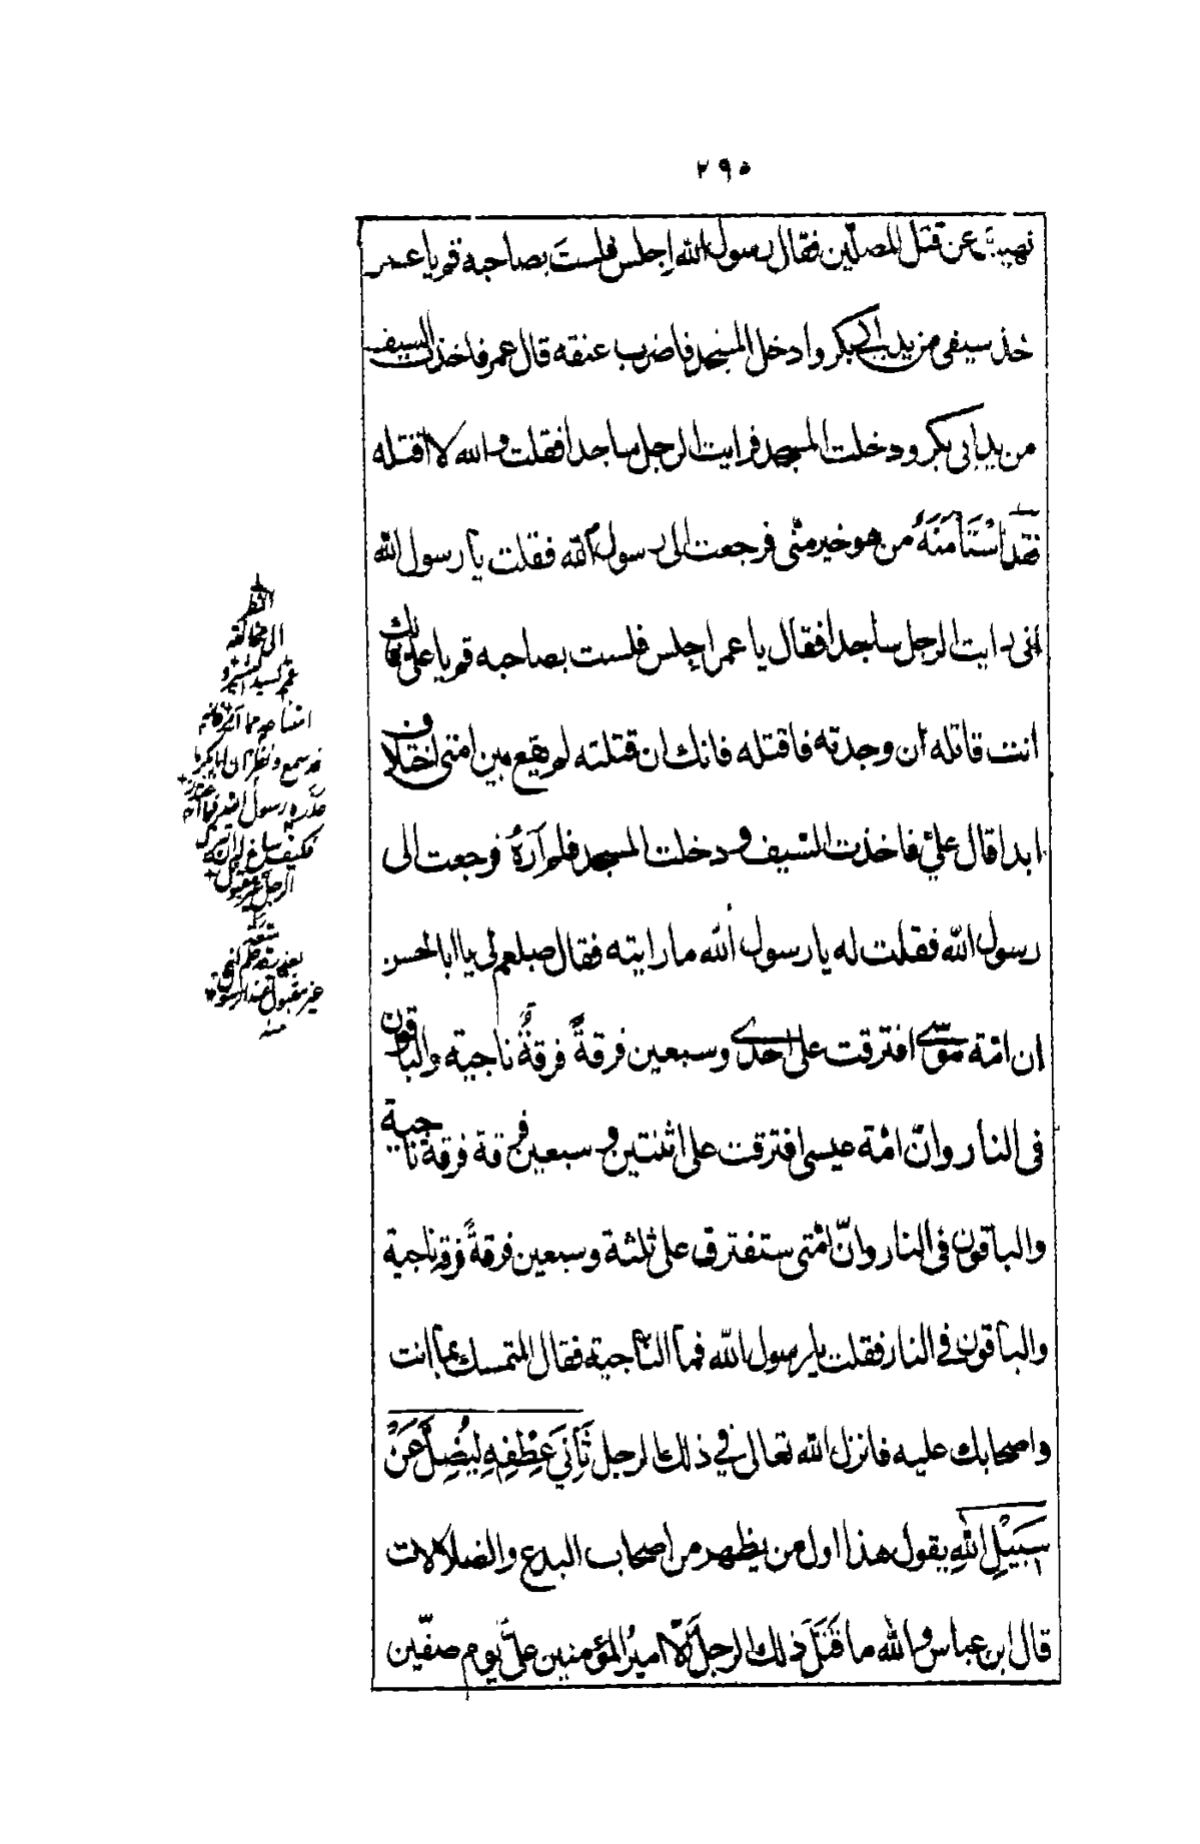 ٢٩٥
نهيت عن قتل المصلّين فقال رسول الله اِجلس فلستَ بصاحبه قم يا عمر
خذ سيفى من يد ابى بكر وادخل المسجد فاضرب عنقه قال عمر فاخذت السيف
من يد ابى بكر ودخلت المسجد فرايت الرجل ساجدا فقلت والله لا اقتله
فقد اسْتَامَنَهُ من هو خير منّى فرجعت الى رسول الله فقلت يا رسول الله
انى رايت الرجل ساجدا فقال يا عمر اجلس فلست بصاحبه قم يا على فانك
انت قاتله ان وجدته فاقتله فانك ان قتلته لم يقع بين امتى اختلاف
ابدا قال علىّ فاخذت السّيف ودخلت المسجد فلم آرَهُ فرجعت الى
رسول الله فقلت له يا رسول الله ما رايته فقال صلعم لى يا ابا الحسن
ان امّة موسى افترقت على احدى وسبعين فرقةً فرقةٌ ناجية والباقون
فى النار وانّ امّة عيسى افترقت على اثنتين وسبعين فرقة فرقة ناجية
والباقون فى النار وانّ امّتى ستفترق على ثلثة وسبعين فرقةً فرقه ناجية
والباقون فى النار فقلت يا رسول الله فما الناجية فقال المتمسك بما انت
واصحابك عليه فانزل الله تعالى فى ذلك الرجل ثَانِيَ عِطْفِهِ لِيُضِلَّ عَنْ
سَبِيْلِ اللهِ يقول هذا اول من يظهر من اصحاب البدع والضلالات
قال ابن عباس والله ما قَتَلَ ذلك الرجلَ الّا اميرُ المؤمنين علىّ يوم صفّين
انظر
الى مخالفة